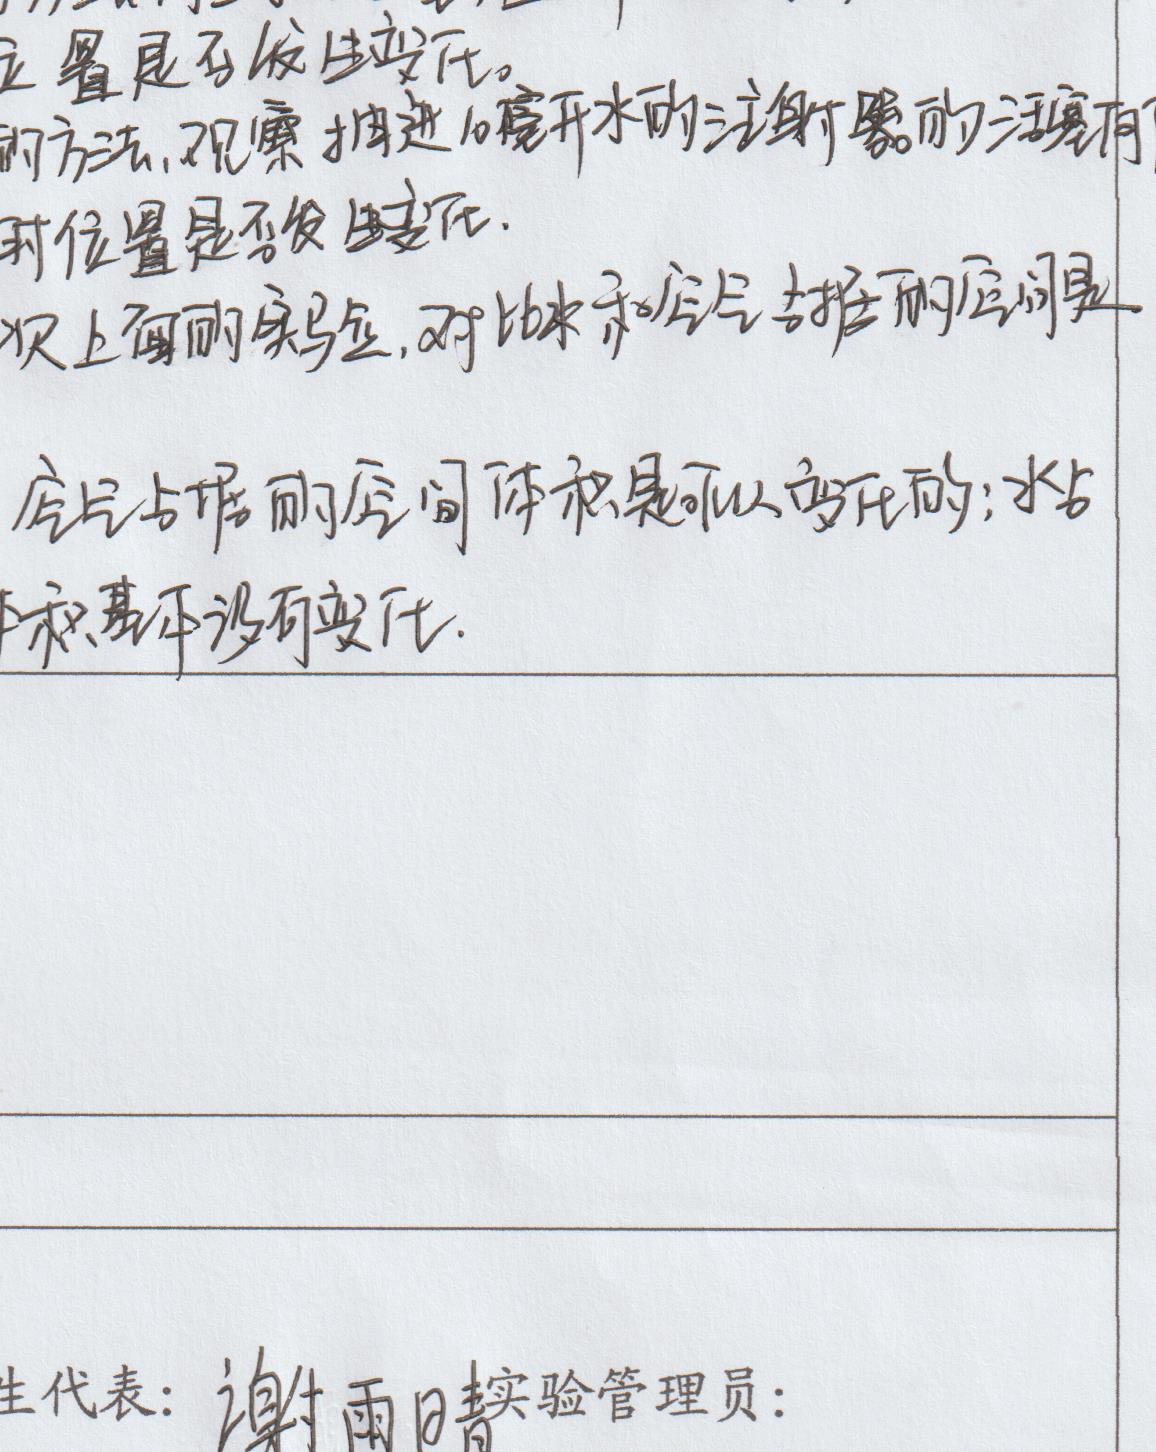 位置是否发生变化。
的方法,观察抽进10毫升水的注射器的活塞有
时位置是否发生变化.
次上面的实验,对比水和空气占据的空间是
空气占据的空间体积是可以变化的;水占
体积基本没有变化.
生代表:谢雨晴实验管理员: